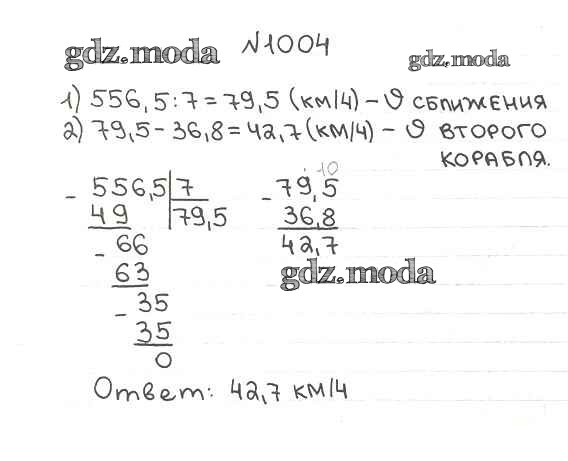 gdz.moda №1004 gdz.moda
1) 556,5:7=79,5 (км/ч) – υ сближения
2) 79,5-36,8=42,7(км/ч) – υ второго
корабля.
- 556,5|7
49 79,5
- 66
63
- 35
35
0
10
- 79,5
36,8
42,7
gdz.moda
Ответ: 42,7 км/ч